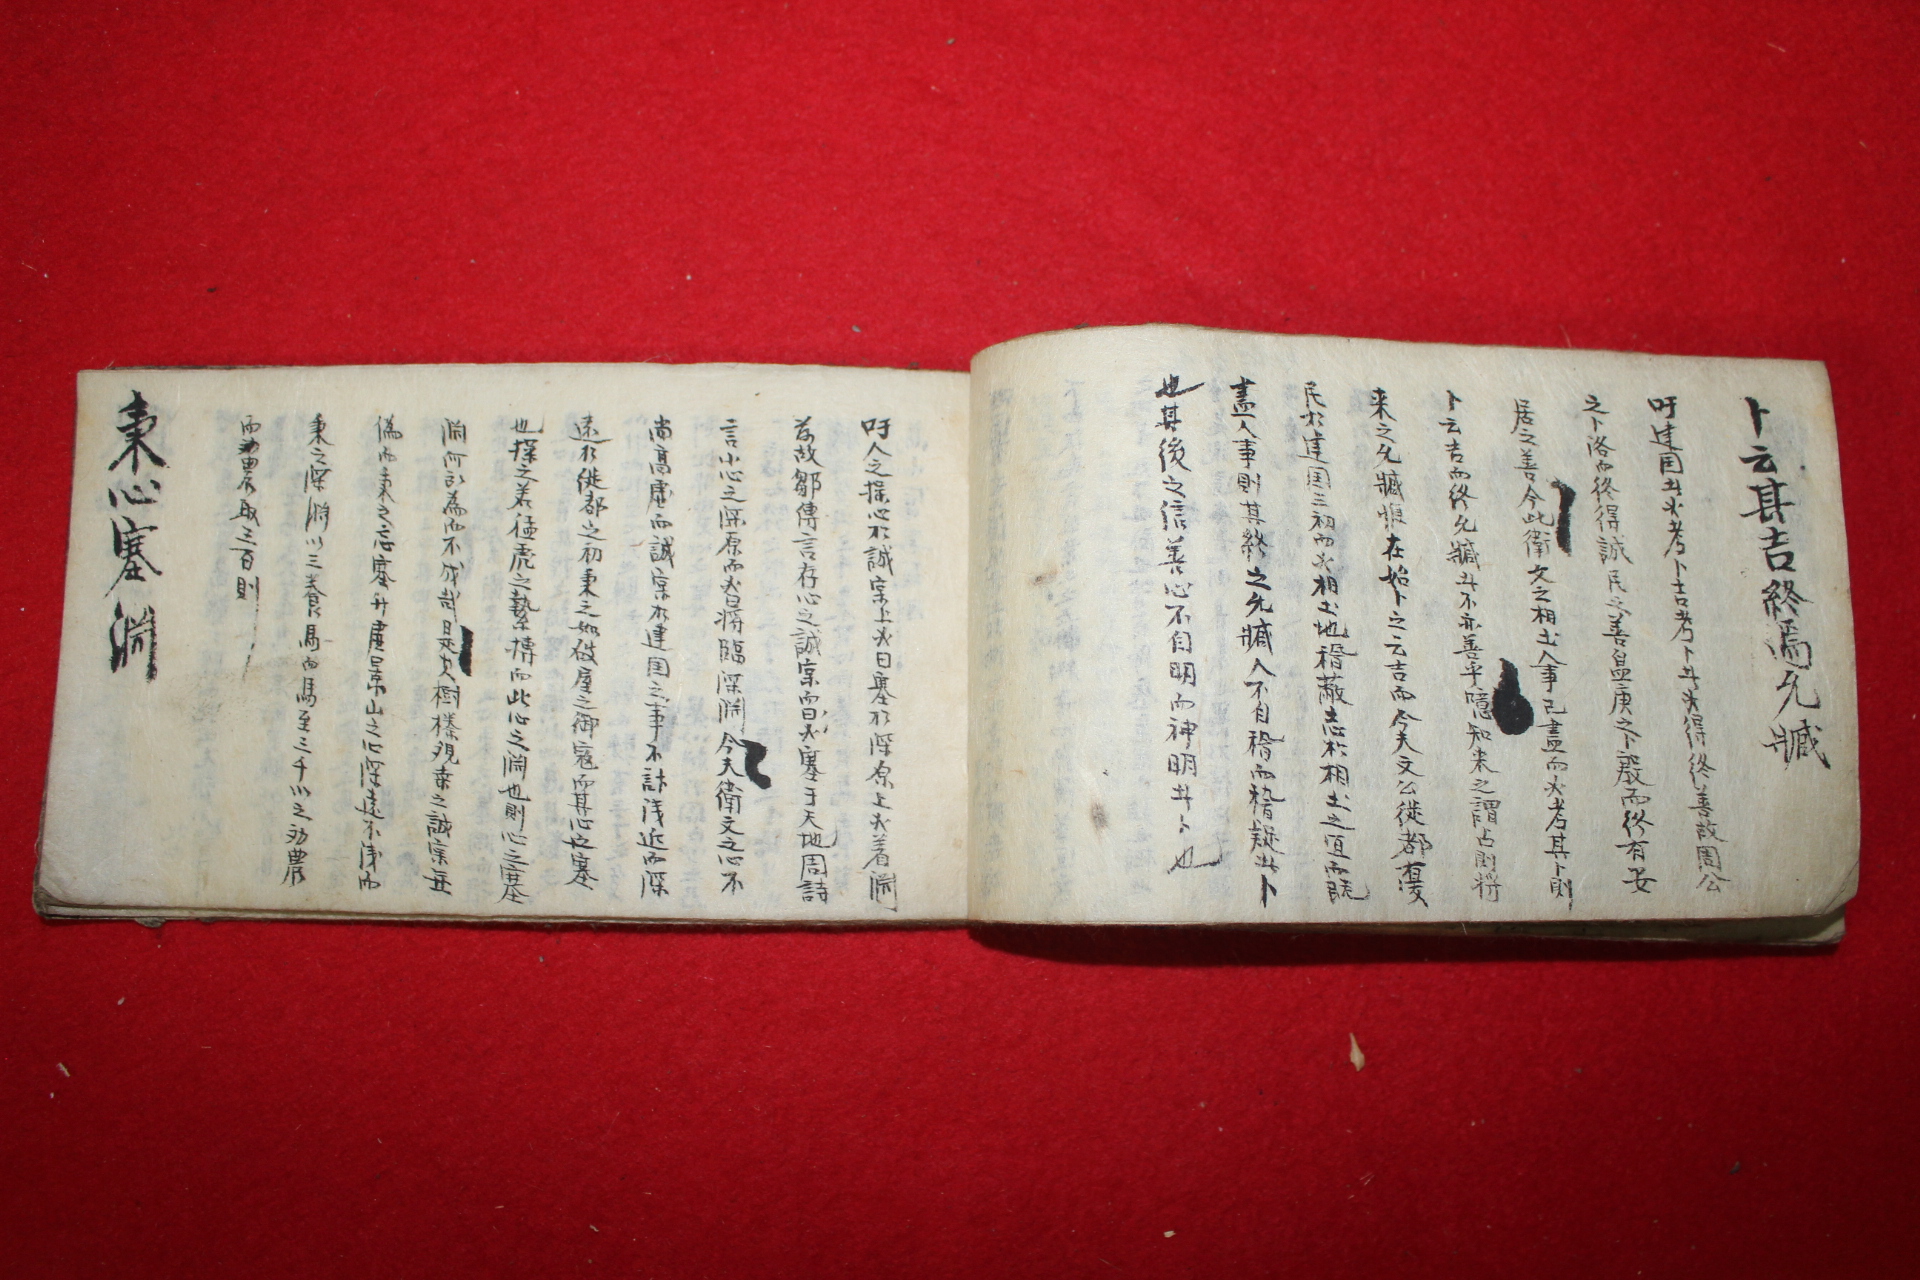 卜云其吉終焉允臧
吁建国者必考卜吉考卜者必得終善故周公
之卜洛而終得誠民之善盤庚之卜殷而終有安
居之善今此衛文之相土人事已盡而必考其卜則
卜云吉而終允臧者不亦善乎噫知来之謂占則将
来之允臧惟在始卜之云吉而今夫文公徙都有漢
民於建国之初而必相土地稽蔽志於相土之宜而既
盡人事則其終之允臧人不自稽而稽疑者卜
也其後之信善心不自明而神明者卜也
吁人之操心於誠実上必曰塞於深原上必着渊
若故鄒傳言存心之誠実而曰必塞于天地周詩
言小心之深原而必曰将臨深渊今夫衛文之心不
尚高虚而誠実於建国之事不計浅近而深
遠於徙都之初秉之如破屋之御寇而其心也塞
也操之若猛虎之摯搏而此心之渊也則心之塞
渊何所為而不成哉是以樹榛観桑之誠実無
偽而秉之忘塞升虚景山之心深遠不浅而
秉之深渊以之養馬而馬至三千以之劝農
而劝農取三百則
秉心塞渊